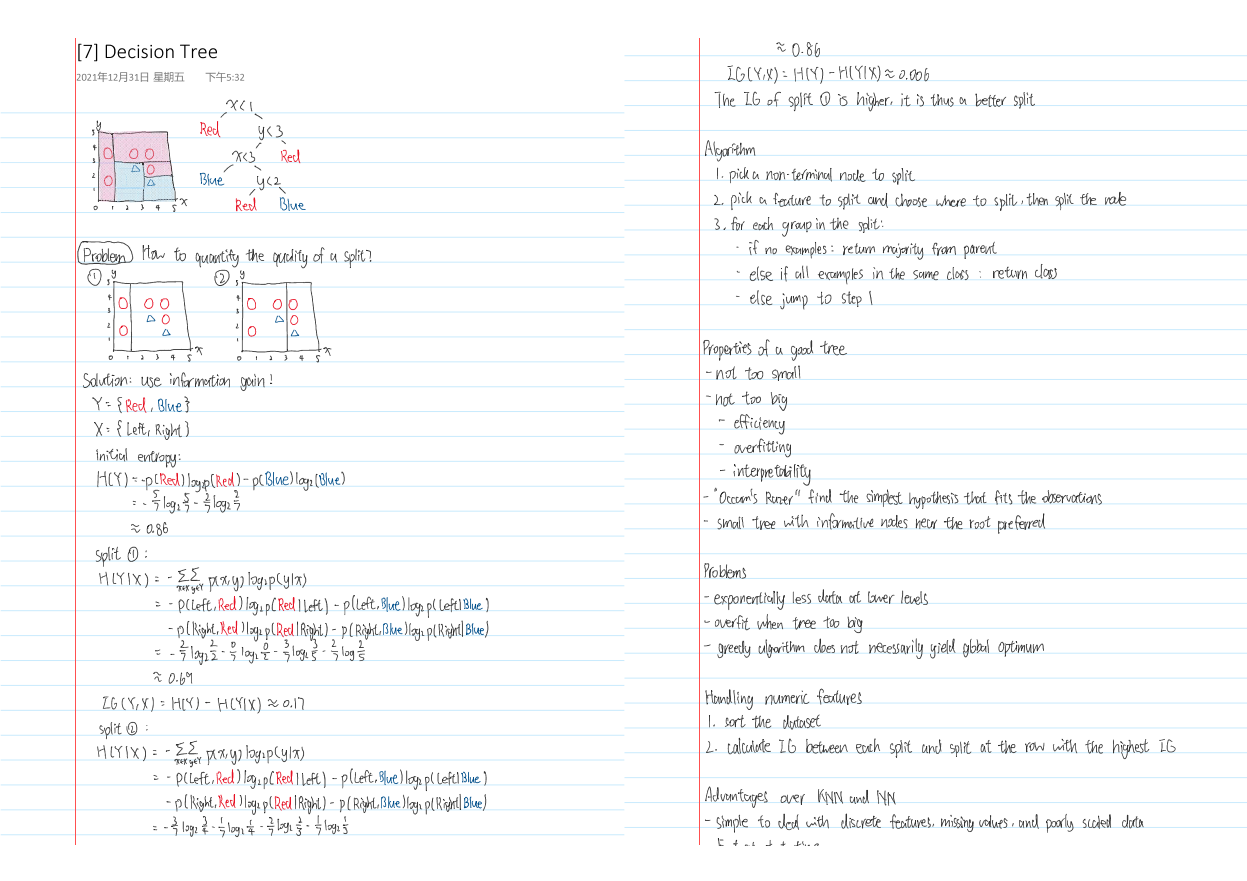 [7] Decision Tree
2021年12月31日 星期五 下午5:32
x<1
Red y<3
x<3 Red
Blue y<2
Red Blue
y
5
4
3
2
1
0 1 2 3 4 5 x
Problem How to quantify the quality of a split?
① y ② y
5 5
4 4
3 3
2 2
1 1
0 1 2 3 4 5 x 0 1 2 3 4 5 x
Solution: use information gain!
Y = {Red, Blue}
X = {Left, Right}
Initial entropy:
H(Y) = -p(Red)log₂p(Red) - p(Blue)log₂(Blue)
= - 5/7 log₂ 5/7 - 2/7 log₂ 2/7
≈ 0.86
split ①:
H(Y|X) = - ∑x∈X ∑y∈Y p(x,y) log₂p(y|x)
= - p(Left, Red)log₂p(Red|Left) - p(Left, Blue)log₂p(Left|Blue)
- p(Right, Red)log₂p(Red|Right) - p(Right, Blue)log₂p(Right|Blue)
= - 2/7 log₂ 2/2 - 0/7 log₂ 0/2 - 3/7 log₂ 3/5 - 2/7 log 2/5
≈ 0.69
IG(Y,X) = H(Y) - H(Y|X) ≈ 0.17
split ②:
H(Y|X) = - ∑x∈X ∑y∈Y p(x,y) log₂p(y|x)
= - p(Left, Red)log₂p(Red|Left) - p(Left, Blue)log₂p(Left|Blue)
- p(Right, Red)log₂p(Red|Right) - p(Right, Blue)log₂p(Right|Blue)
= - 3/7 log₂ 3/4 - 1/7 log₂ 1/4 - 2/7 log₂ 2/3 - 1/7 log₂ 1/3
≈ 0.86
IG(Y,X) = H(Y) - H(Y|X) ≈ 0.006
The IG of split ① is higher, it is thus a better split
Algorithm
1. pick a non-terminal node to split
2. pick a feature to split and choose where to split, then split the node
3. for each group in the split:
- if no examples: return majority from parent
- else if all examples in the same class: return class
- else jump to step 1
Properties of a good tree
- not too small
- not too big
- efficiency
- overfitting
- interpretability
- "Occam's Razer" find the simplest hypothesis that fits the observations
- small tree with informative nodes near the root preferred
Problems
- exponentially less data at lower levels
- overfit when tree too big
- greedy algorithm does not necessarily yield global optimum
Handling numeric features
1. sort the dataset
2. calculate IG between each split and split at the row with the highest IG
Advantages over KNN and NN
- simple to deal with discrete features, missing values, and poorly scaled data